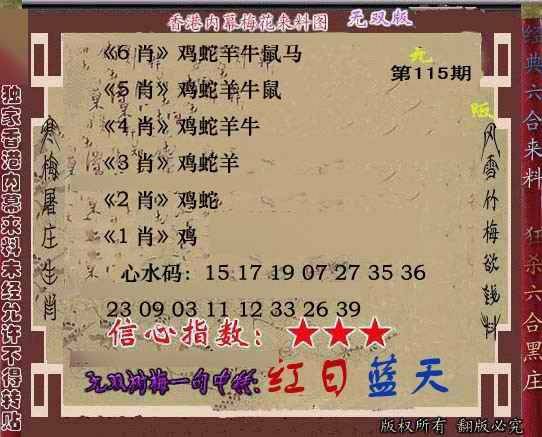 香港内幕梅花来料图 无双版
《6 肖》鸡蛇羊牛鼠马
无
第115期
《5 肖》鸡蛇羊牛鼠
版
《4 肖》鸡蛇羊牛
《3 肖》鸡蛇羊
《2 肖》鸡蛇
《1 肖》鸡
心水码：15 17 19 07 27 35 36
23 09 03 11 12 33 26 39
信心指数：★★★
红日蓝天
版权所有 翻版必究
独家香港内幕来料未经允许不得转贴
寒梅屠庄生肖
风雪竹梅欲钱料
经典六合来料
狂杀六合黑庄